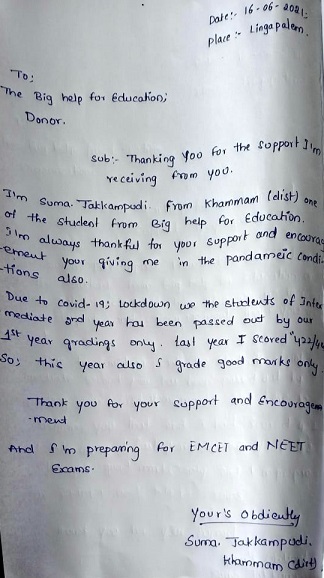 Date:- 16-06-2021.
place :- Lingapalem.
To;
The Big help for Education;
Donor.
sub:- Thanking you for the support I'm
receiving from you.
I'm Suma. Jakkampudi from Khammam (dist) one
of the student from Big help for Education.
I'm always thankful for your support and encourag
-ement your giving me in the pandameic condi
-tions also.
Due to covid-19; lockdown we the students of Inter
mediate 2nd year has been passed out by our
1st year gradings only. last year I scored
So; this year also grade good marks only.
Thank you for your support and Encourage
-ment
And I'm preparing for EMCET and NEET
Exams.
Your's Obdiently
Suma. Jakkampudi.
Khammam (dist)